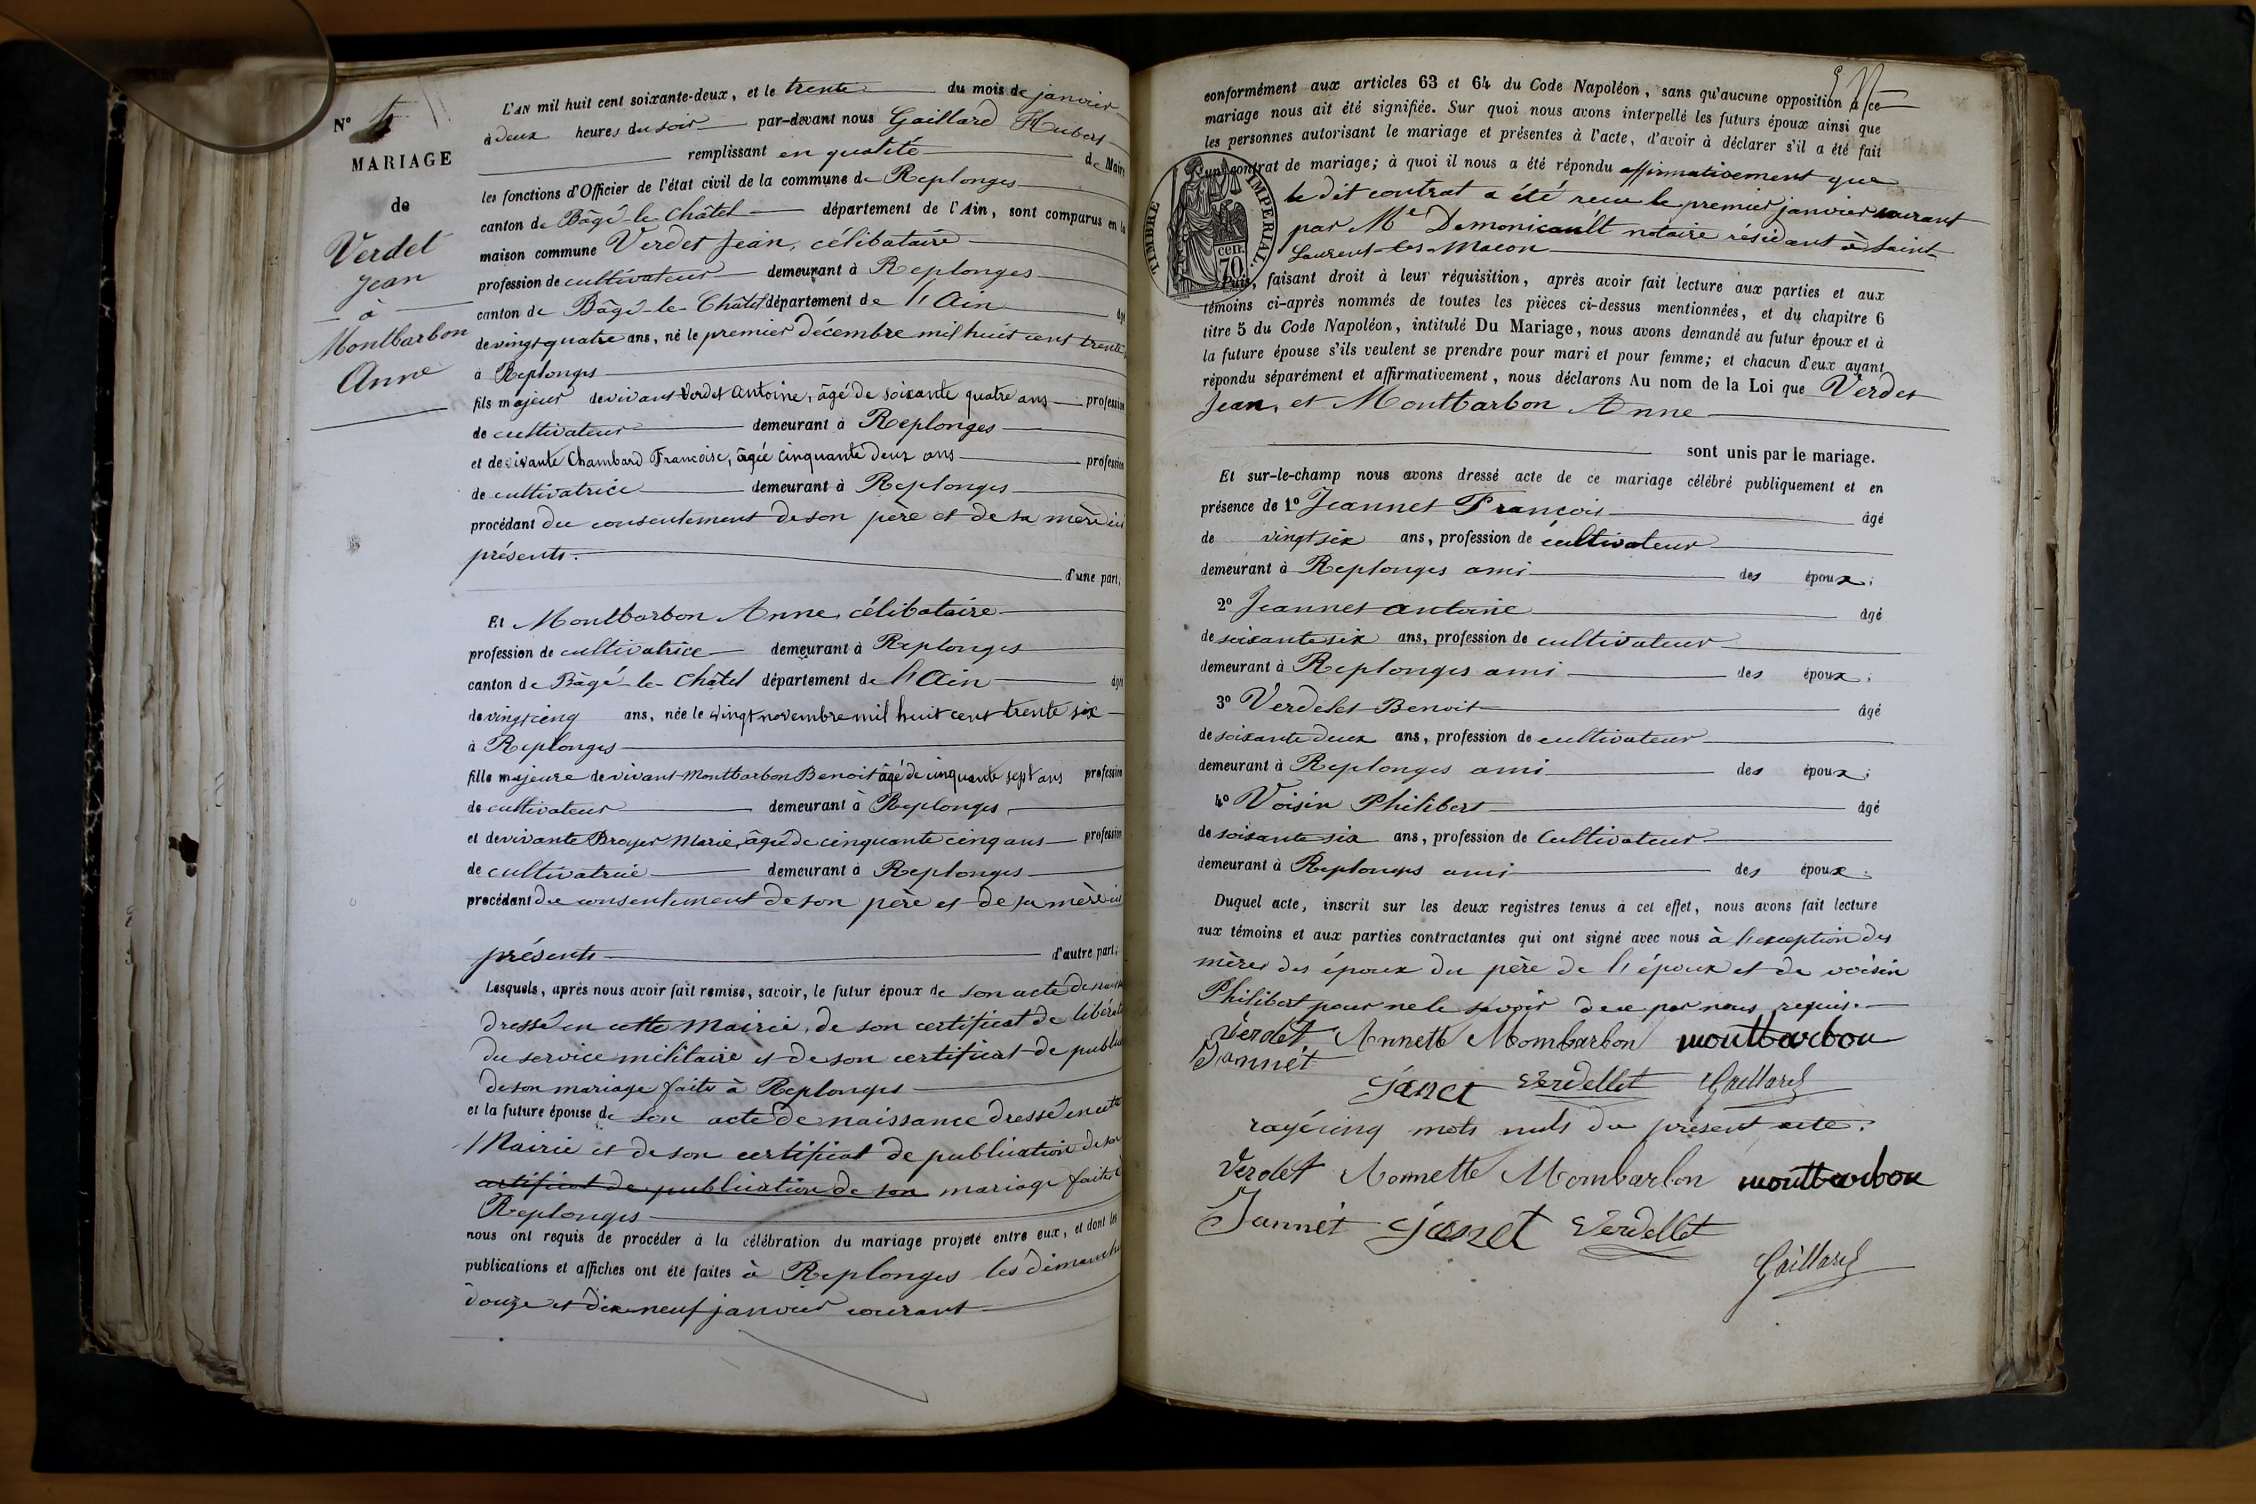 N°
MARIAGE
de
Verdet
Jean
à
Montbarbon
Anne
L'AN mil huit cent soixante-deux, et le trente du mois de janvier
à deux heures du soir par-devant nous Gaillard Hubert
remplissant en qualité de Maire
les fonctions d'Officier de l'état civil de la commune de Replonges
canton de Bâgé-le-Châtel département de l'Ain, sont comparus en la
maison commune Verdet Jean, célibataire
profession de cultivateur demeurant à Replonges
canton de Bâgé-le-Châtel département de l'Ain âgé
de vingt quatre ans, né le premier décembre mil huit cent trente
à Replonges
fils majeur de vivant Verdet Antoine, âgé de soixante quatre ans profession
de cultivateur demeurant à Replonges
et de vivante Chambard Francoise, âgée cinquante deux ans profession
de cultivatrice demeurant à Replonges
procédant du consentement de son père et de sa mère ici
présents. d'une part;
Et Montbarbon Anne, célibataire
profession de cultivatrice demeurant à Replonges
canton de Bâgé-le-Châtel département de l'Ain âgée
de vingt cinq ans, née le vingt novembre mil huit cent trente six
à Replonges
fille majeure de vivant Montbarbon Benoit âgé de cinquante sept ans profession
de cultivateur demeurant à Replonges
et de vivante Broyer Marie, âgée de cinquante cinq ans profession
de cultivatrice demeurant à Replonges
procédant du consentement de son père et de sa mère ici
présents d'autre part;
Lesquels, après nous avoir fait remise, savoir, le futur époux de son acte de
dressé en cette Mairie, de son certificat de
du service militaire et de son certificat de
de son mariage faite à Replonges
et la future épouse de son acte de naissance dressé en cette
Mairie et de son certificat de publication de son
certificat de publication de son mariage faite à
Replonges
nous ont requis de procéder à la célébration du mariage projeté entre eux, et dont les
publications et affiches ont été faites à Replonges les dimanches
douze et dix neuf janvier courant
conformément aux articles 63 et 64 du Code Napoléon, sans qu'aucune opposition à ce
mariage nous ait été signifiée. Sur quoi nous avons interpellé les futurs époux ainsi que
les personnes autorisant le mariage et présentes à l'acte, d'avoir à déclarer s'il a été fait
un contrat de mariage; à quoi il nous a été répondu affirmativement que
le dit contrat a été recu le premier janvier courant
par Me Demonicault notaire résidant à Saint
Laurent-les-Macon
TIMBRE IMPERIAL
70 cen.
Puis, faisant droit à leur réquisition, après avoir fait lecture aux parties et aux
témoins ci-après nommés de toutes les pièces ci-dessus mentionnées, et du chapitre 6
titre 5 du Code Napoléon, intitulé Du Mariage, nous avons demandé au futur époux et à
la future épouse s'ils veulent se prendre pour mari et pour femme; et chacun d'eux ayant
répondu séparément et affirmativement, nous déclarons Au nom de la Loi que Verdet
Jean, et Montbarbon Anne
sont unis par le mariage.
Et sur-le-champ nous avons dressé acte de ce mariage célébré publiquement et en
présence de 1° Jeannet François âgé
de vingt six ans, profession de cultivateur
demeurant à Replonges ami des époux;
2° Jeannet Antoine âgé
de soixante six ans, profession de cultivateur
demeurant à Replonges ami des époux;
3° Verdelet Benoit âgé
de soixante deux ans, profession de cultivateur
demeurant à Replonges ami des époux;
4° Voisin Philibert âgé
de soixante six ans, profession de Cultivateur
demeurant à Replonges ami des époux.
Duquel acte, inscrit sur les deux registres tenus à cet effet, nous avons fait lecture
aux témoins et aux parties contractantes qui ont signé avec nous à l'exception des
mères des époux du père de l'époux et de voisin
Philibert pour ne le savoir de ce par nous requis.
Verdet Annette Mombarbon montbarbon
Jannet
Janet Verdellet Gaillard
rayé cinq mots nuls du présent acte.
Verdet Annette Mombarbon montbarbon
Jannet Janet Verdellet
Gaillard